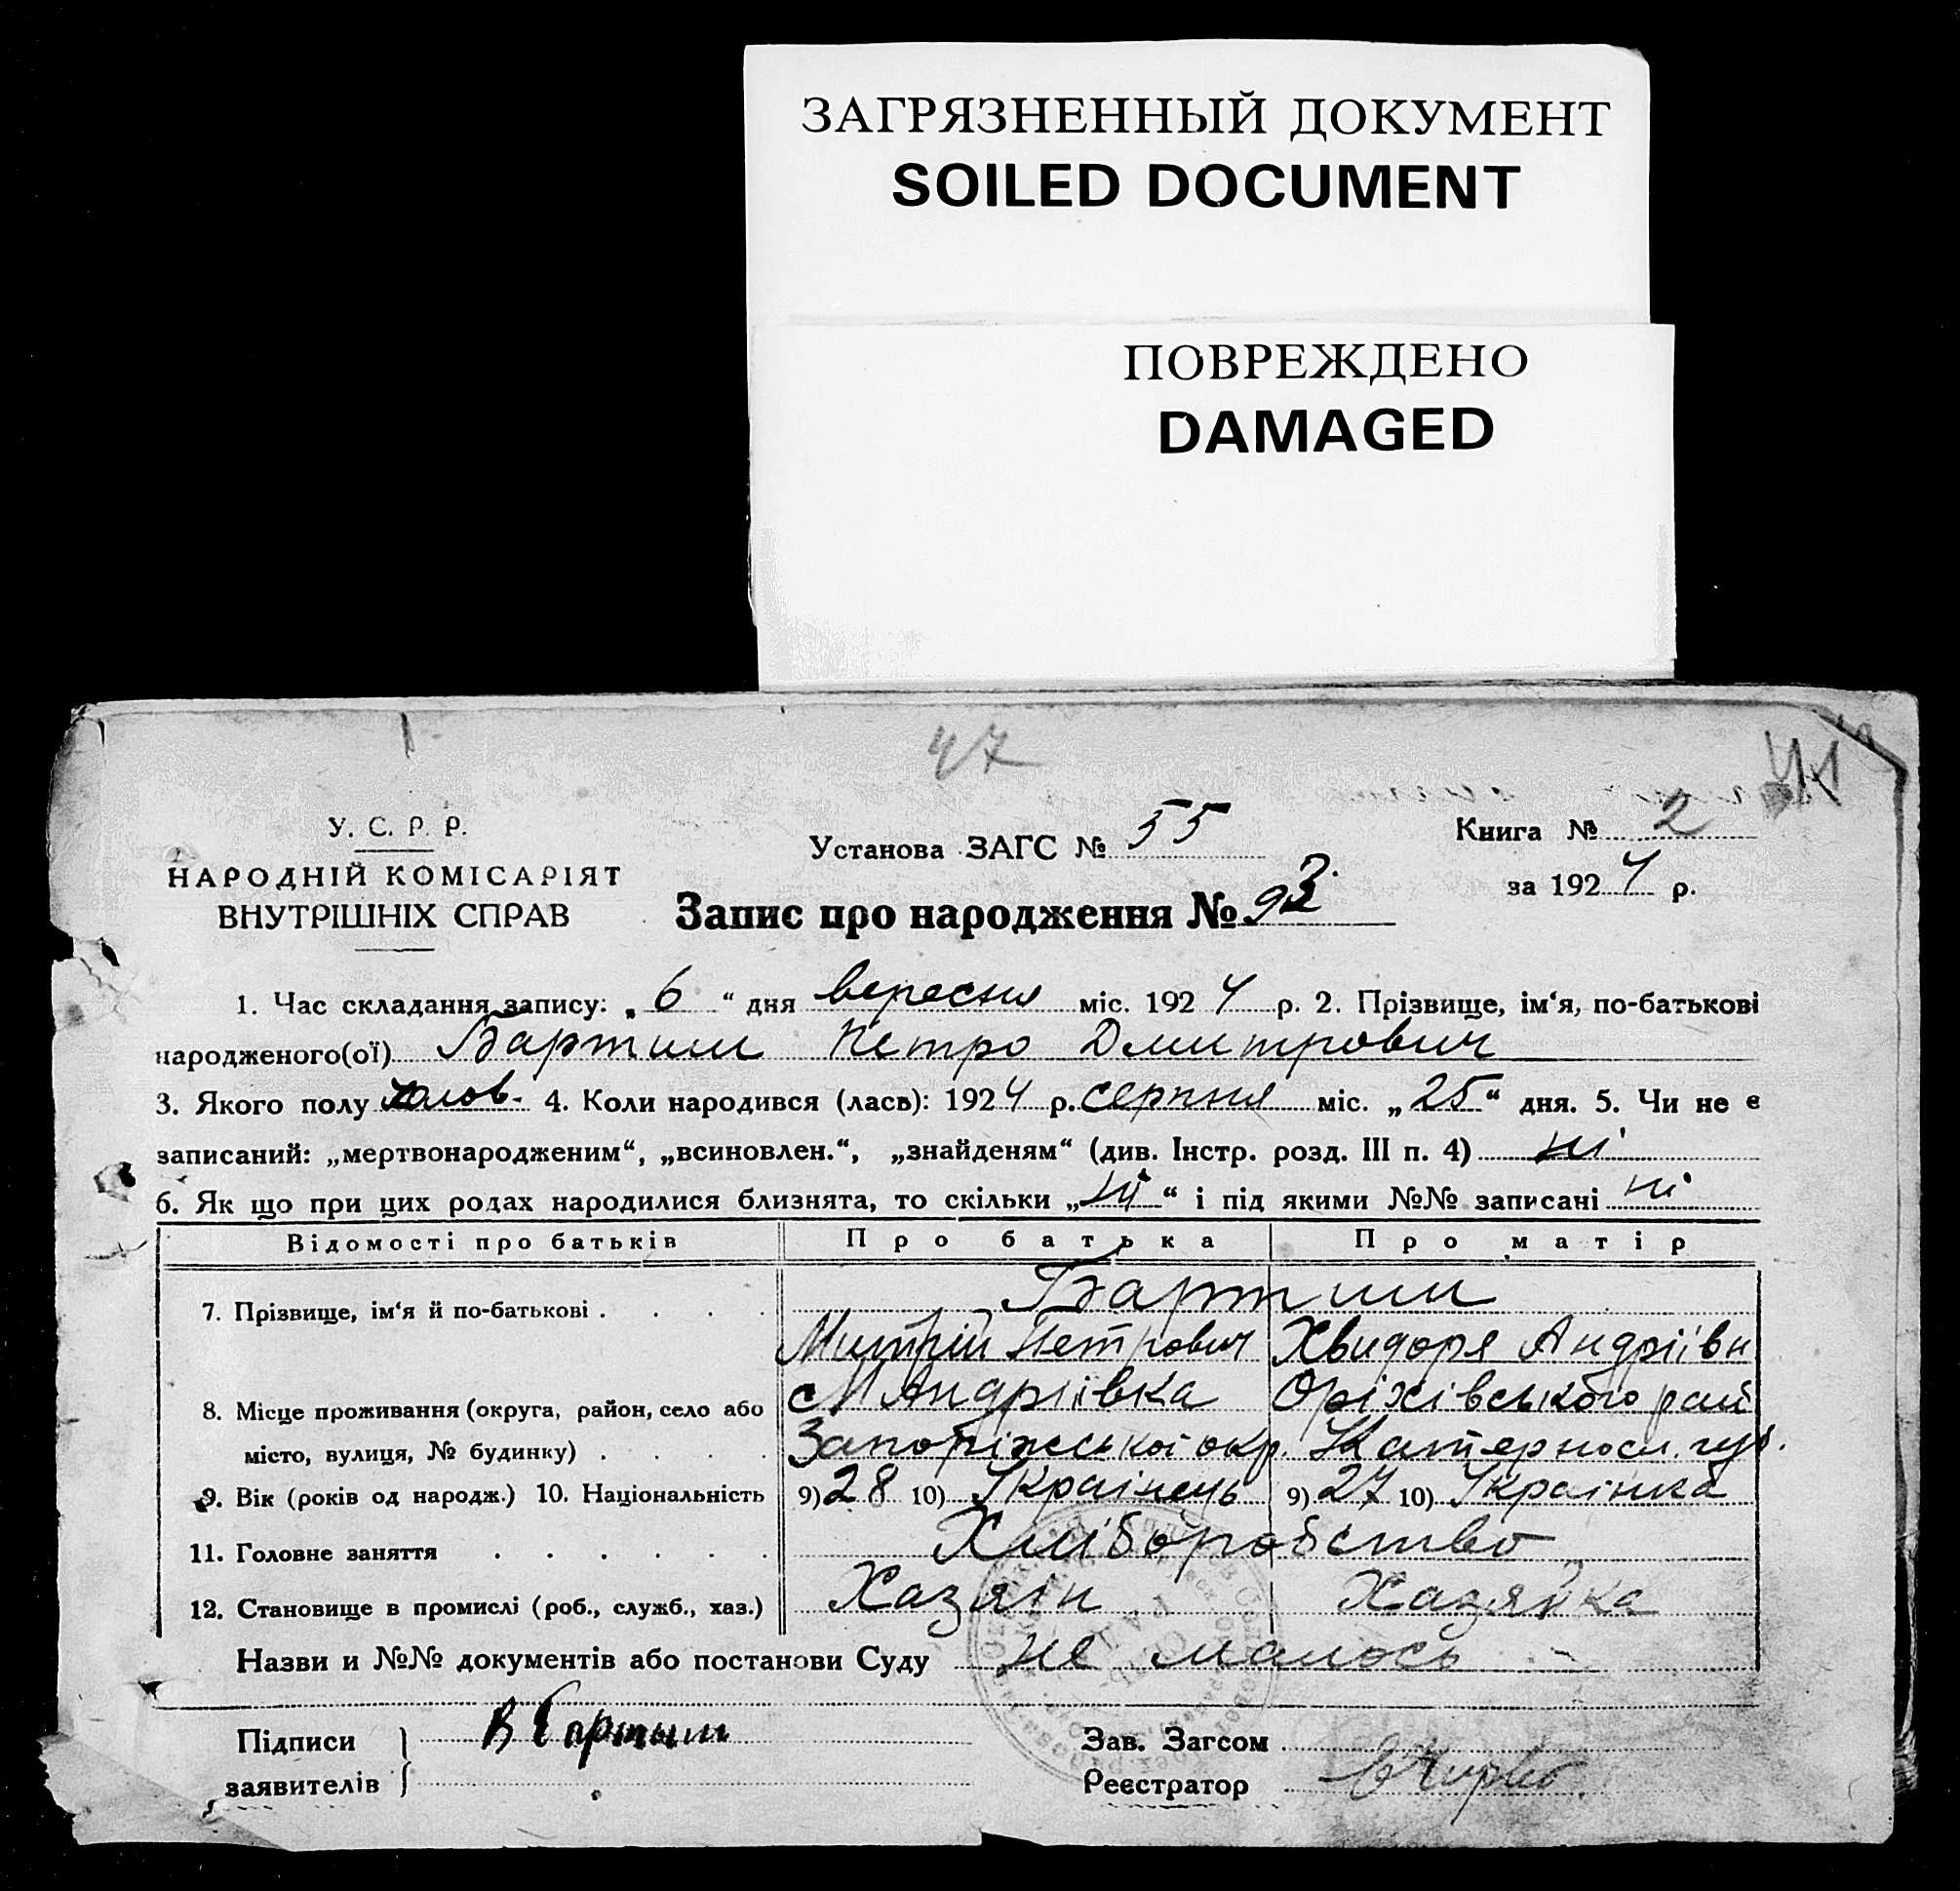 ЗАГРЯЗНЕННЫЙ ДОКУМЕНТ
SOILED DOCUMENT
ПОВРЕЖДЕНО
DAMAGED
47
У. С. Р. Р.
НАРОДНІЙ КОМІСАРІЯТ
ВНУТРІШНІХ СПРАВ
Установа ЗАГС № 55
Запис про народження № 93
Книга № 2
за 1924 р.
1. Час складання запису: „6“ дня вересня міс. 1924 р. 2. Прізвище, ім‘я, по-батькові
народженого(ої) Бартиш Петро Дмитрович
3. Якого полу чолов. 4. Коли народився (лась): 1924 р. серпня міс. „25“ дня. 5. Чи не є
записаний: „мертвонародженим“, „всиновлен.“, „знайденям“ (див. Інстр. розд. III п. 4) ні
6. Як що при цих родах народилися близнята, то скільки „ні“ і під якими №№ записані ні
Відомості про батьків Про батька Про матір
7. Прізвище, ім‘я й по-батькові . . . . Бартиш
Митрій Петрович Хвидоря Андріївн
8. Місце проживання (округа, район, село або с М Андріївка Оріхівського рай
місто, вулиця, № будинку) . . . . Запоріжської окр. Катерносл. губ.
9. Вік (років од народж.) 10. Національність 9) 28 10) Українець 9) 27 10) Українка
11. Головне заняття . . . . . . Хліборобство
12. Становище в промислі (роб., служб., хаз.) Хазяїн Хазяйка
Назви и №№ документів або постанови Суду не малось
Підписи В Бартыш
заявителів
Зав. Загсом
Реєстратор